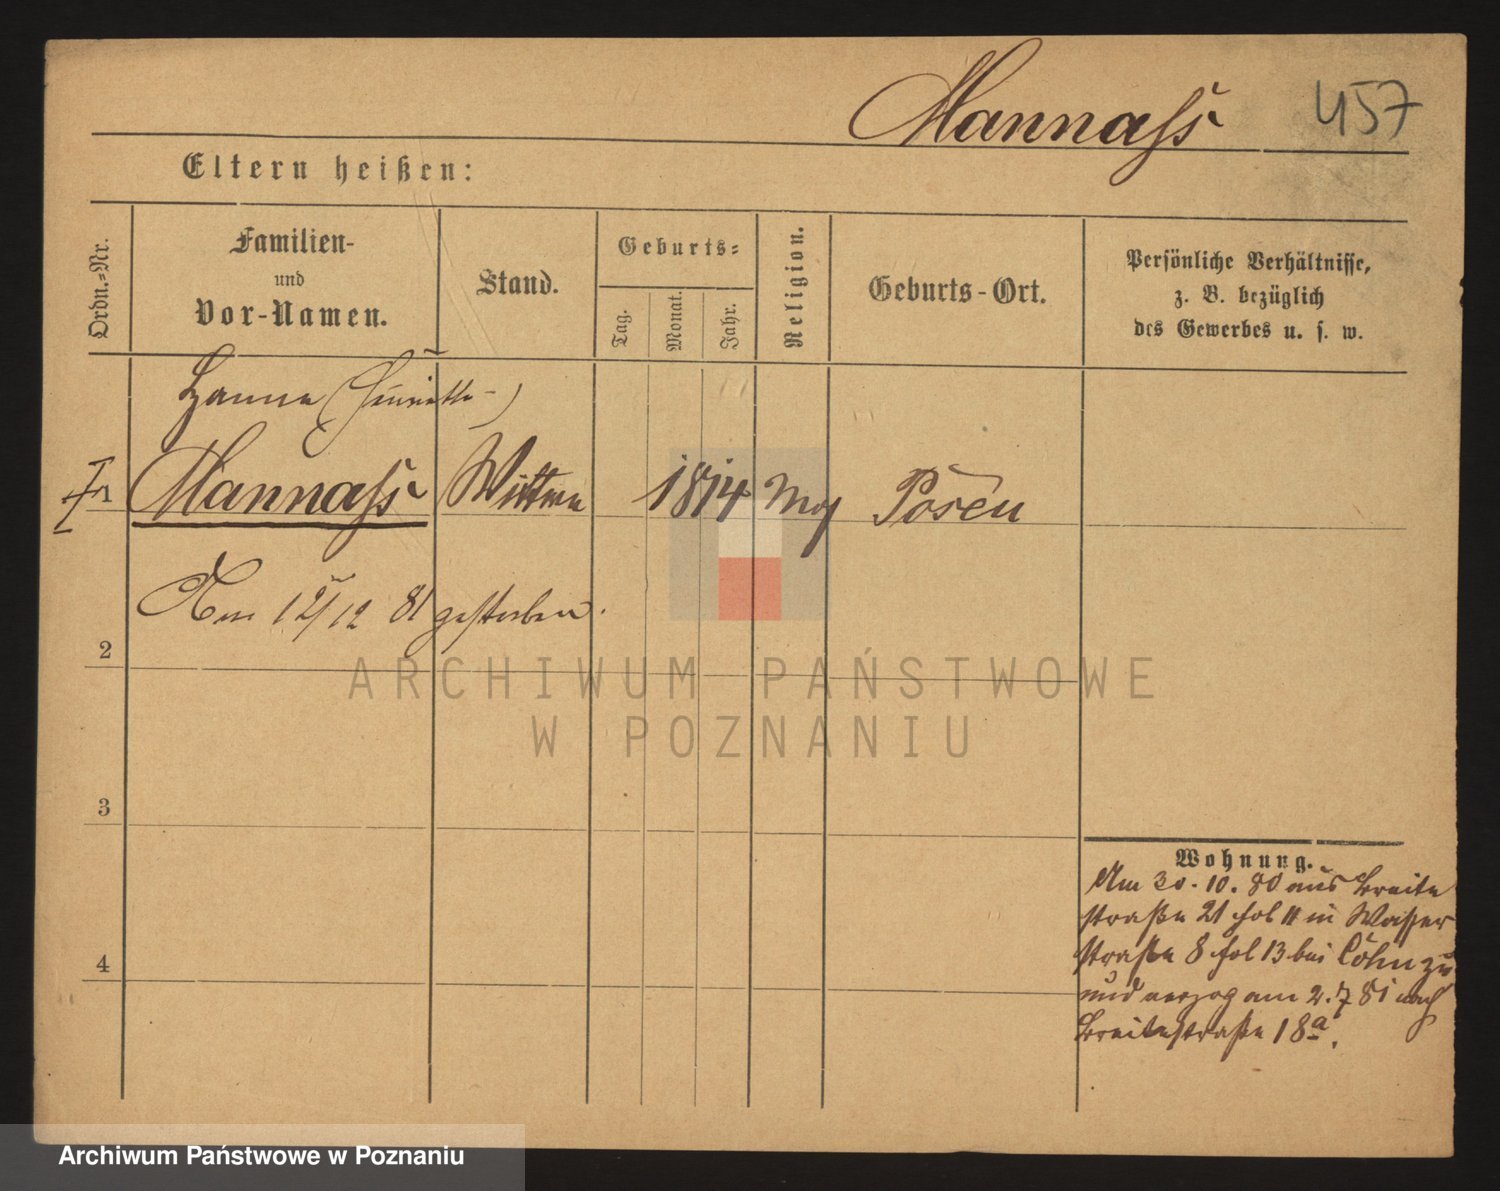 Mannass 457
Eltern heißen:
Ordn.=Nr.
Familien-
und
Vor-Namen.
Stand.
Geburts=
Tag.
Monat.
Jahr.
Religion.
Geburts-Ort.
Persönliche Verhältnisse,
z. B. bezüglich
des Gewerbes u. s. w.
Hanna (Henriette)
1 Mannass Wittwe 1814 mos Posen
Am 12/12 81 gestorben.
2
3
4
Wohnung.
Am 30. 10. 80 aus Breite
straße 21 fol 11 in Wasser
straße 8 fol 13 bei Cohn zu
und verzog am 2. 7 81 nach
Breitestraße 18a.
ARCHIWUM PAŃSTWOWE
W POZNANIU
Archiwum Państwowe w Poznaniu